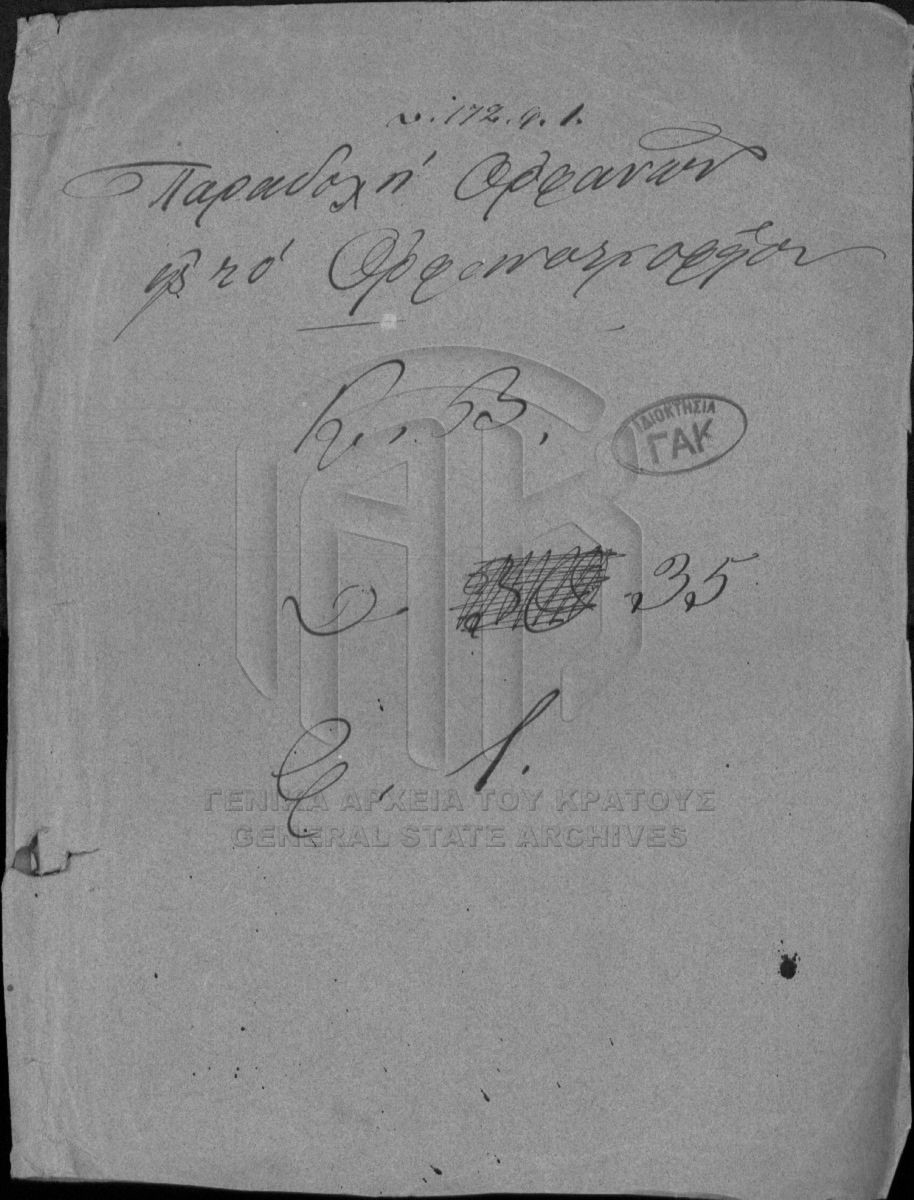 υ. 172. φ. 1.
Παραδοχή Ὀρφανῶν
εἰς τό Ὀρφανοτροφεῖον
Κ. Β.
ΙΔΙΟΚΤΗΣΙΑ
ΓΑΚ
υ. 35
φ. 1.
ΓΕΝΙΚΑ ΑΡΧΕΙΑ ΤΟΥ ΚΡΑΤΟΥΣ
GENERAL STATE ARCHIVES